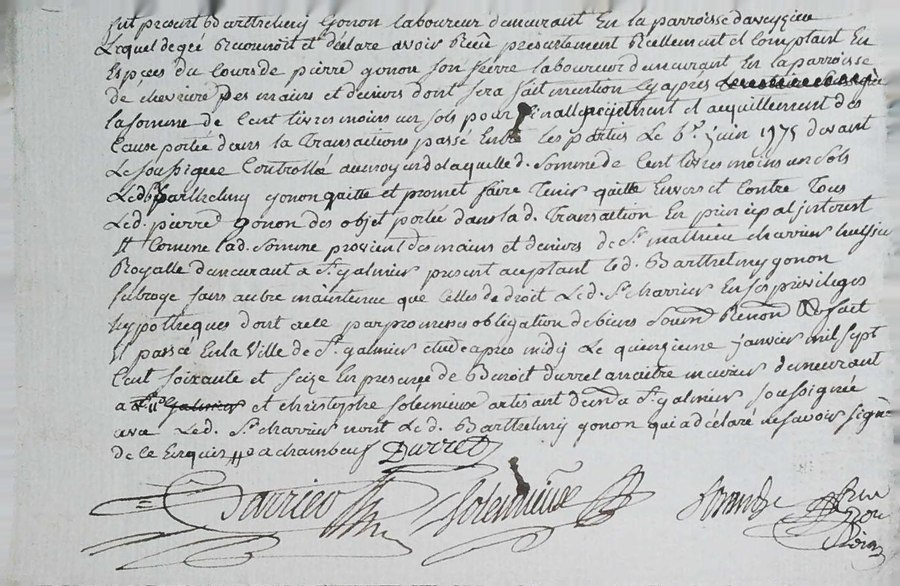 fut present Barthelemy Gonon laboureur demeurant En la parroisse
Lequel de gré Reconnoit et déclare avoir Receu presentement Réellement et Comptant En
Espèces du Cours de pierre gonon son frère laboureur demeurant En la parroisse
de chevriere des mains et deniers dont sera fait mention cy après
la somme de Cent livres moins un sols pour et acquillement des
Cause portée dans la Transactions passé Entre les parties Le juin 1775 devant
Le soussignée Controllée au moyend de laquelle d. Somme de Cent livres moins un Sols
Led. Barthelmy gonon quitte et promet faire Tenir quitte Envers et Contre Tous
Led. pierre Gonon des objet portée dans la d. Transaction En principal jnterest
Et Comme lad. Somme provient des mains et deniers de Sr. mathieu charrier
Royalle demeurant a St. galmier present aceptant led. Barthelmy gonon
subroge sans autre maintenue que Celles de droit Led. Sr. charrier En ses privileges
hypothèques dont acte par promesses obligation de biens Soumn. Renond. fait
Et passé En la Ville de St. galmier etude apres midy Le quinzieme janvier mil sept
Cent soixante et seize En presence de Benoit durret maitre demeurant
a et christophe Solemnieux artisant demd. a St. galmier soussignée
avec Led. Sr. charrier non Led. Barthelmy gonon qui a déclaré ne savoir signer
de ce Enquis a chambeuf Durret
Charrier Solemnieux